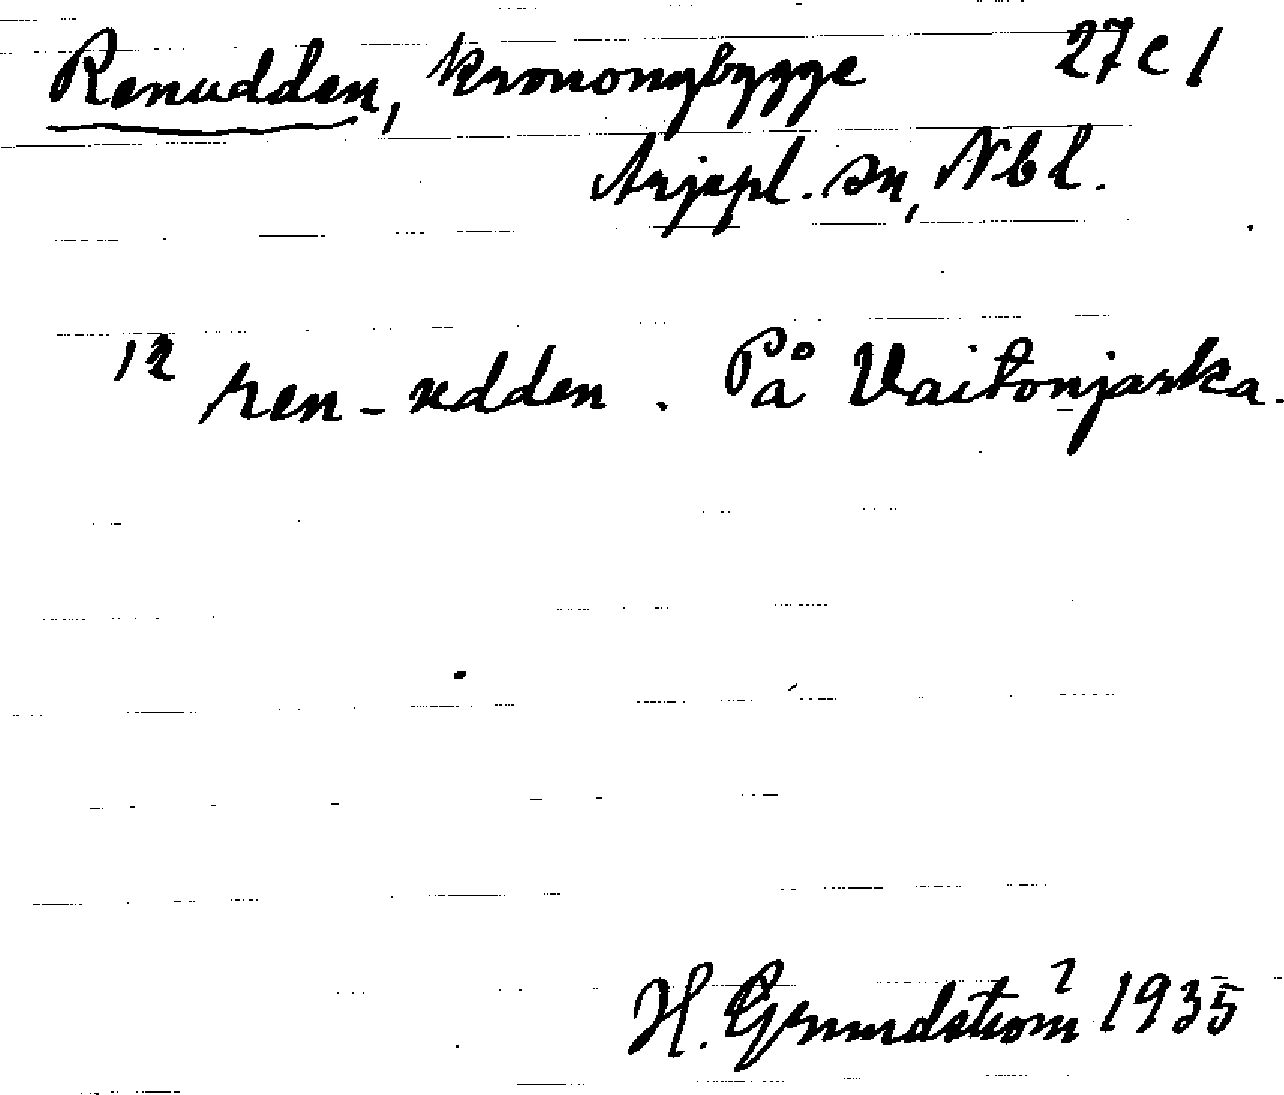 Renudden, kronongbygge 27 C 1
Arjepl. sn, Nbl.
12 ren-udden. På Vaitonjarka.
H. Grundström 1935